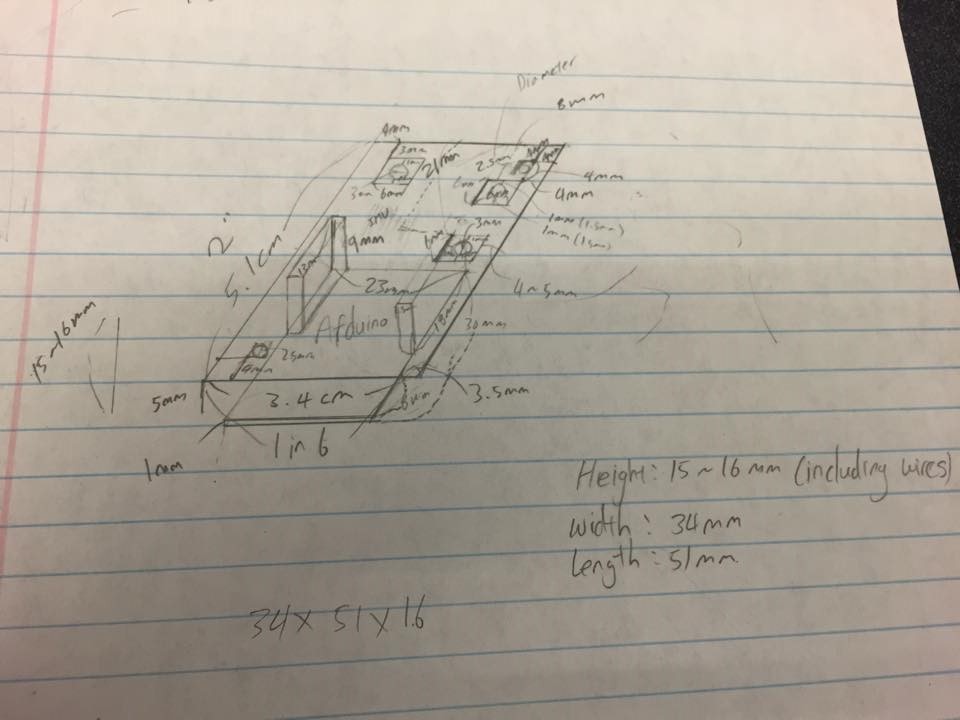 Diameter
8mm
4mm
3mm
21mm
2.5mm
4mm
3mm 6mm
6mm
4mm
1mm (1.5mm)
1mm (1.5mm)
IMU
3mm
9mm
2"
5.1cm
13mm
23mm
4~5mm
15~16mm
Arduino
18mm
30mm
25mm
9mm
5mm
3.4 cm
6mm
3.5mm
1 in 6
1mm
Height: 15~16mm (including wires)
width: 34mm
length: 51mm
34 x 51 x 16